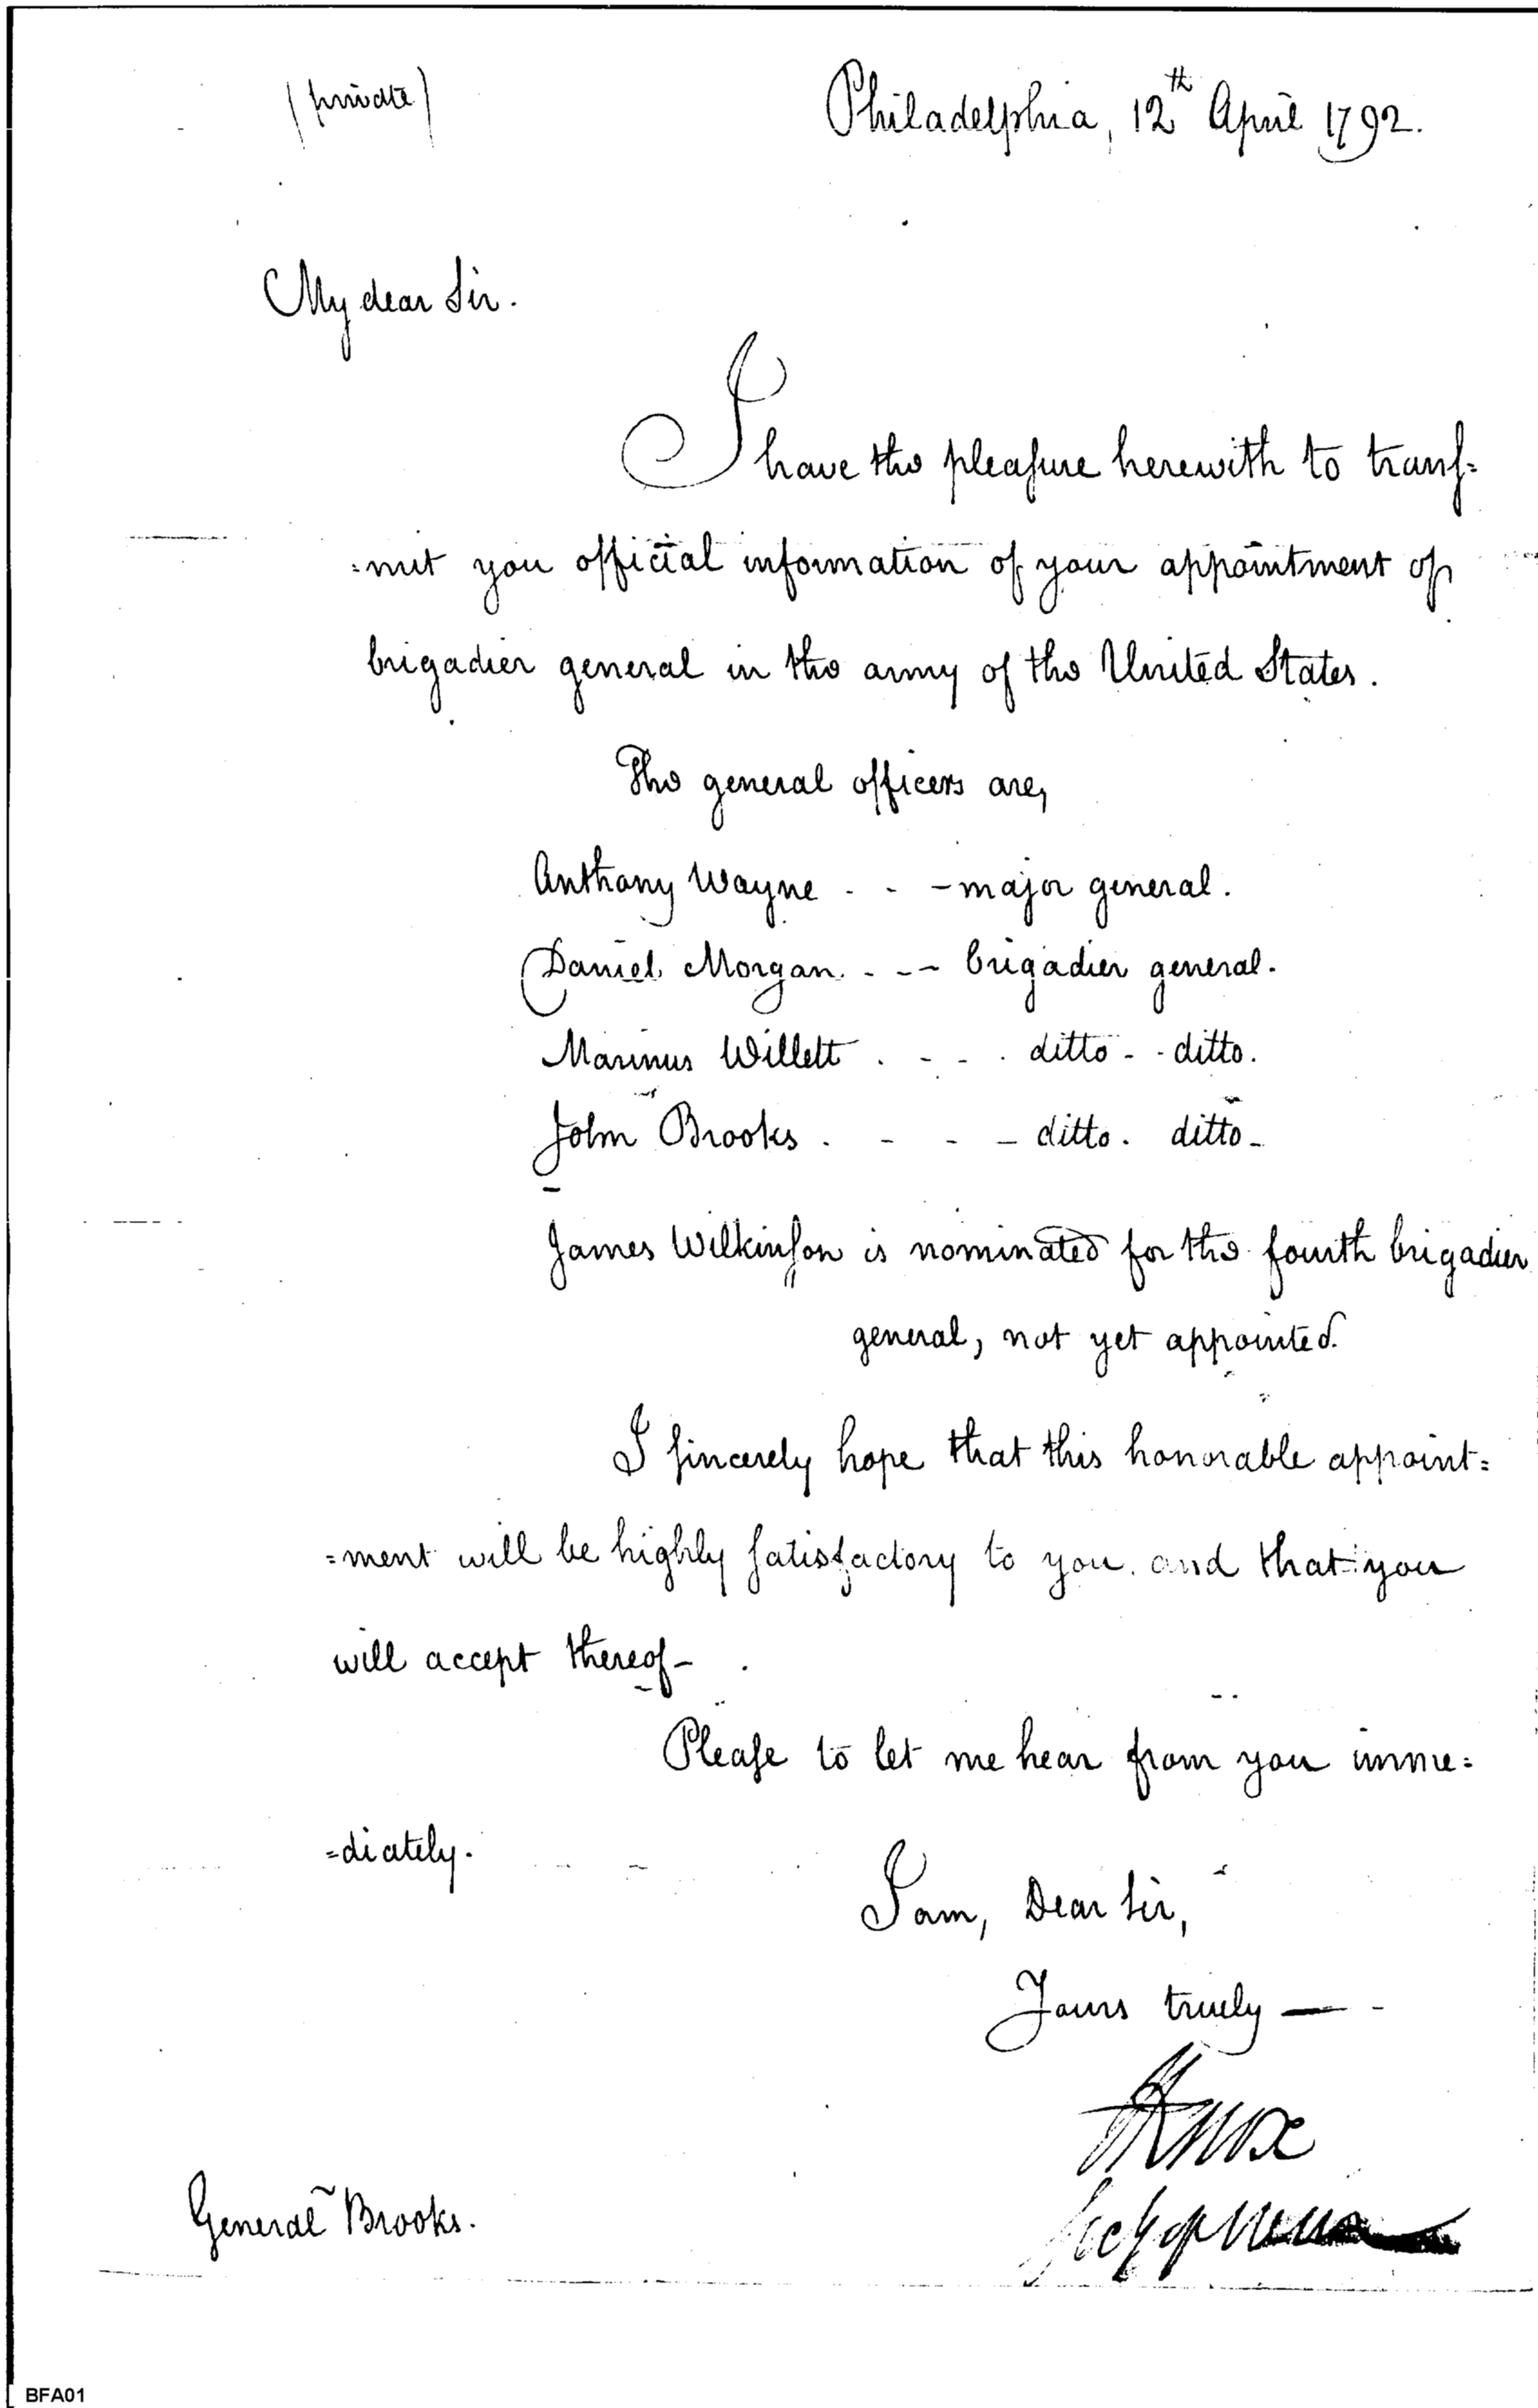 (private)
Philadelphia, 12th April 1792.
My dear Sir.
I have the pleaſure herewith to tranſ=
=mit you official information of your appointment of
brigadier general in the army of the United States.
The general officers are,
Anthony Wayne - - - major general.
Daniel Morgan - - - brigadier general.
Marinus Willett . - - . ditto - - ditto.
John Brooks . - - - ditto. ditto -
James Wilkinſon is nominated for the fourth brigadier
general, not yet appointed.
I ſincerely hope that this honorable appoint=
=ment will be highly ſatisfactory to you and that you
will accept thereof -
Pleaſe to let me hear from you imme=
=diately.
I am, Dear Sir,
Yours truely —
HKnox
Secy of War
General Brooks.
BFA01